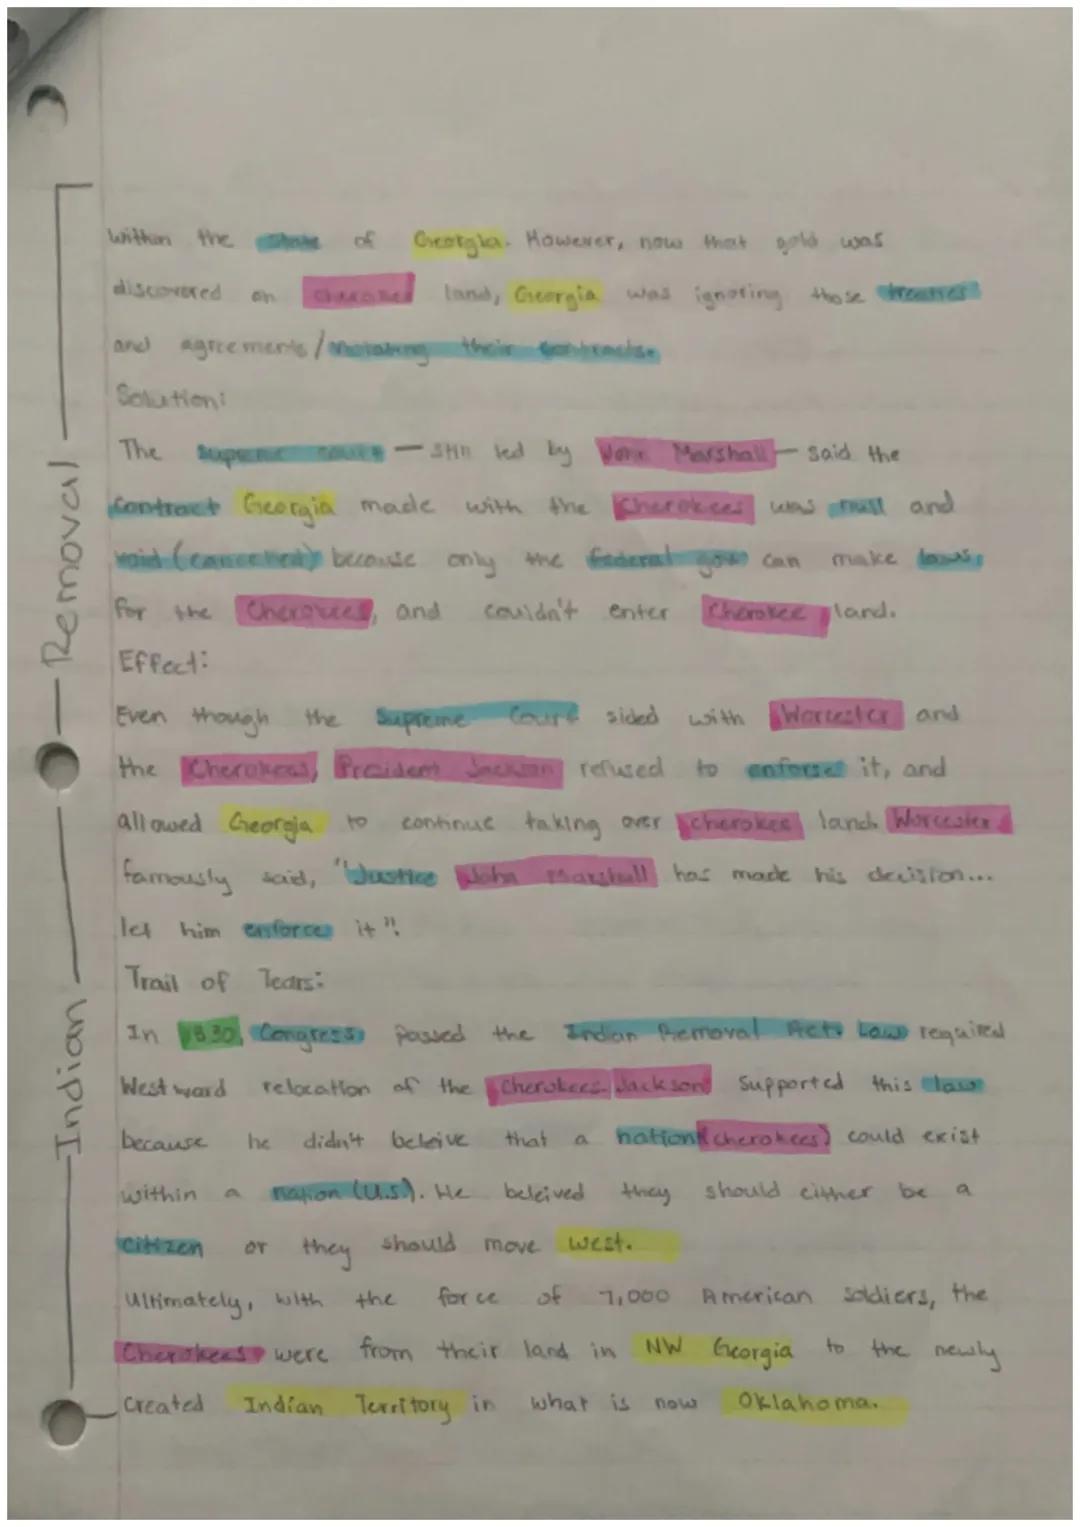 Indian Removal
within the state of Georgia. However, now that gold was
discovered on Cherokee land, Georgia was ignoring those treaties
and agreements/violating their contracts.
Solution:
The Supreme Court — still led by John Marshall — said the
contract Georgia made with the Cherokees was null and
void (cancelled) because only the federal gov can make laws
for the Cherokees, and couldn't enter Cherokee land.
Effect:
Even though the Supreme Court sided with Worcester and
the Cherokees, President Jackson refused to enforce it, and
allowed Georgia to continue taking over cherokee land. Worcester
famously said, "Justice John Marshall has made his decision...
let him enforce it".
Trail of Tears:
In 1830, Congress passed the Indian Removal Act. Law required
Westward relocation of the Cherokees. Jackson supported this law
because he didn't beleive that a nation (cherokees) could exist
within a nation (U.S). He beleived they should either be a
citizen or they should move west.
Ultimately, with the force of 7,000 American soldiers, the
Cherokees were from their land in NW Georgia to the newly
created Indian Territory in what is now Oklahoma.